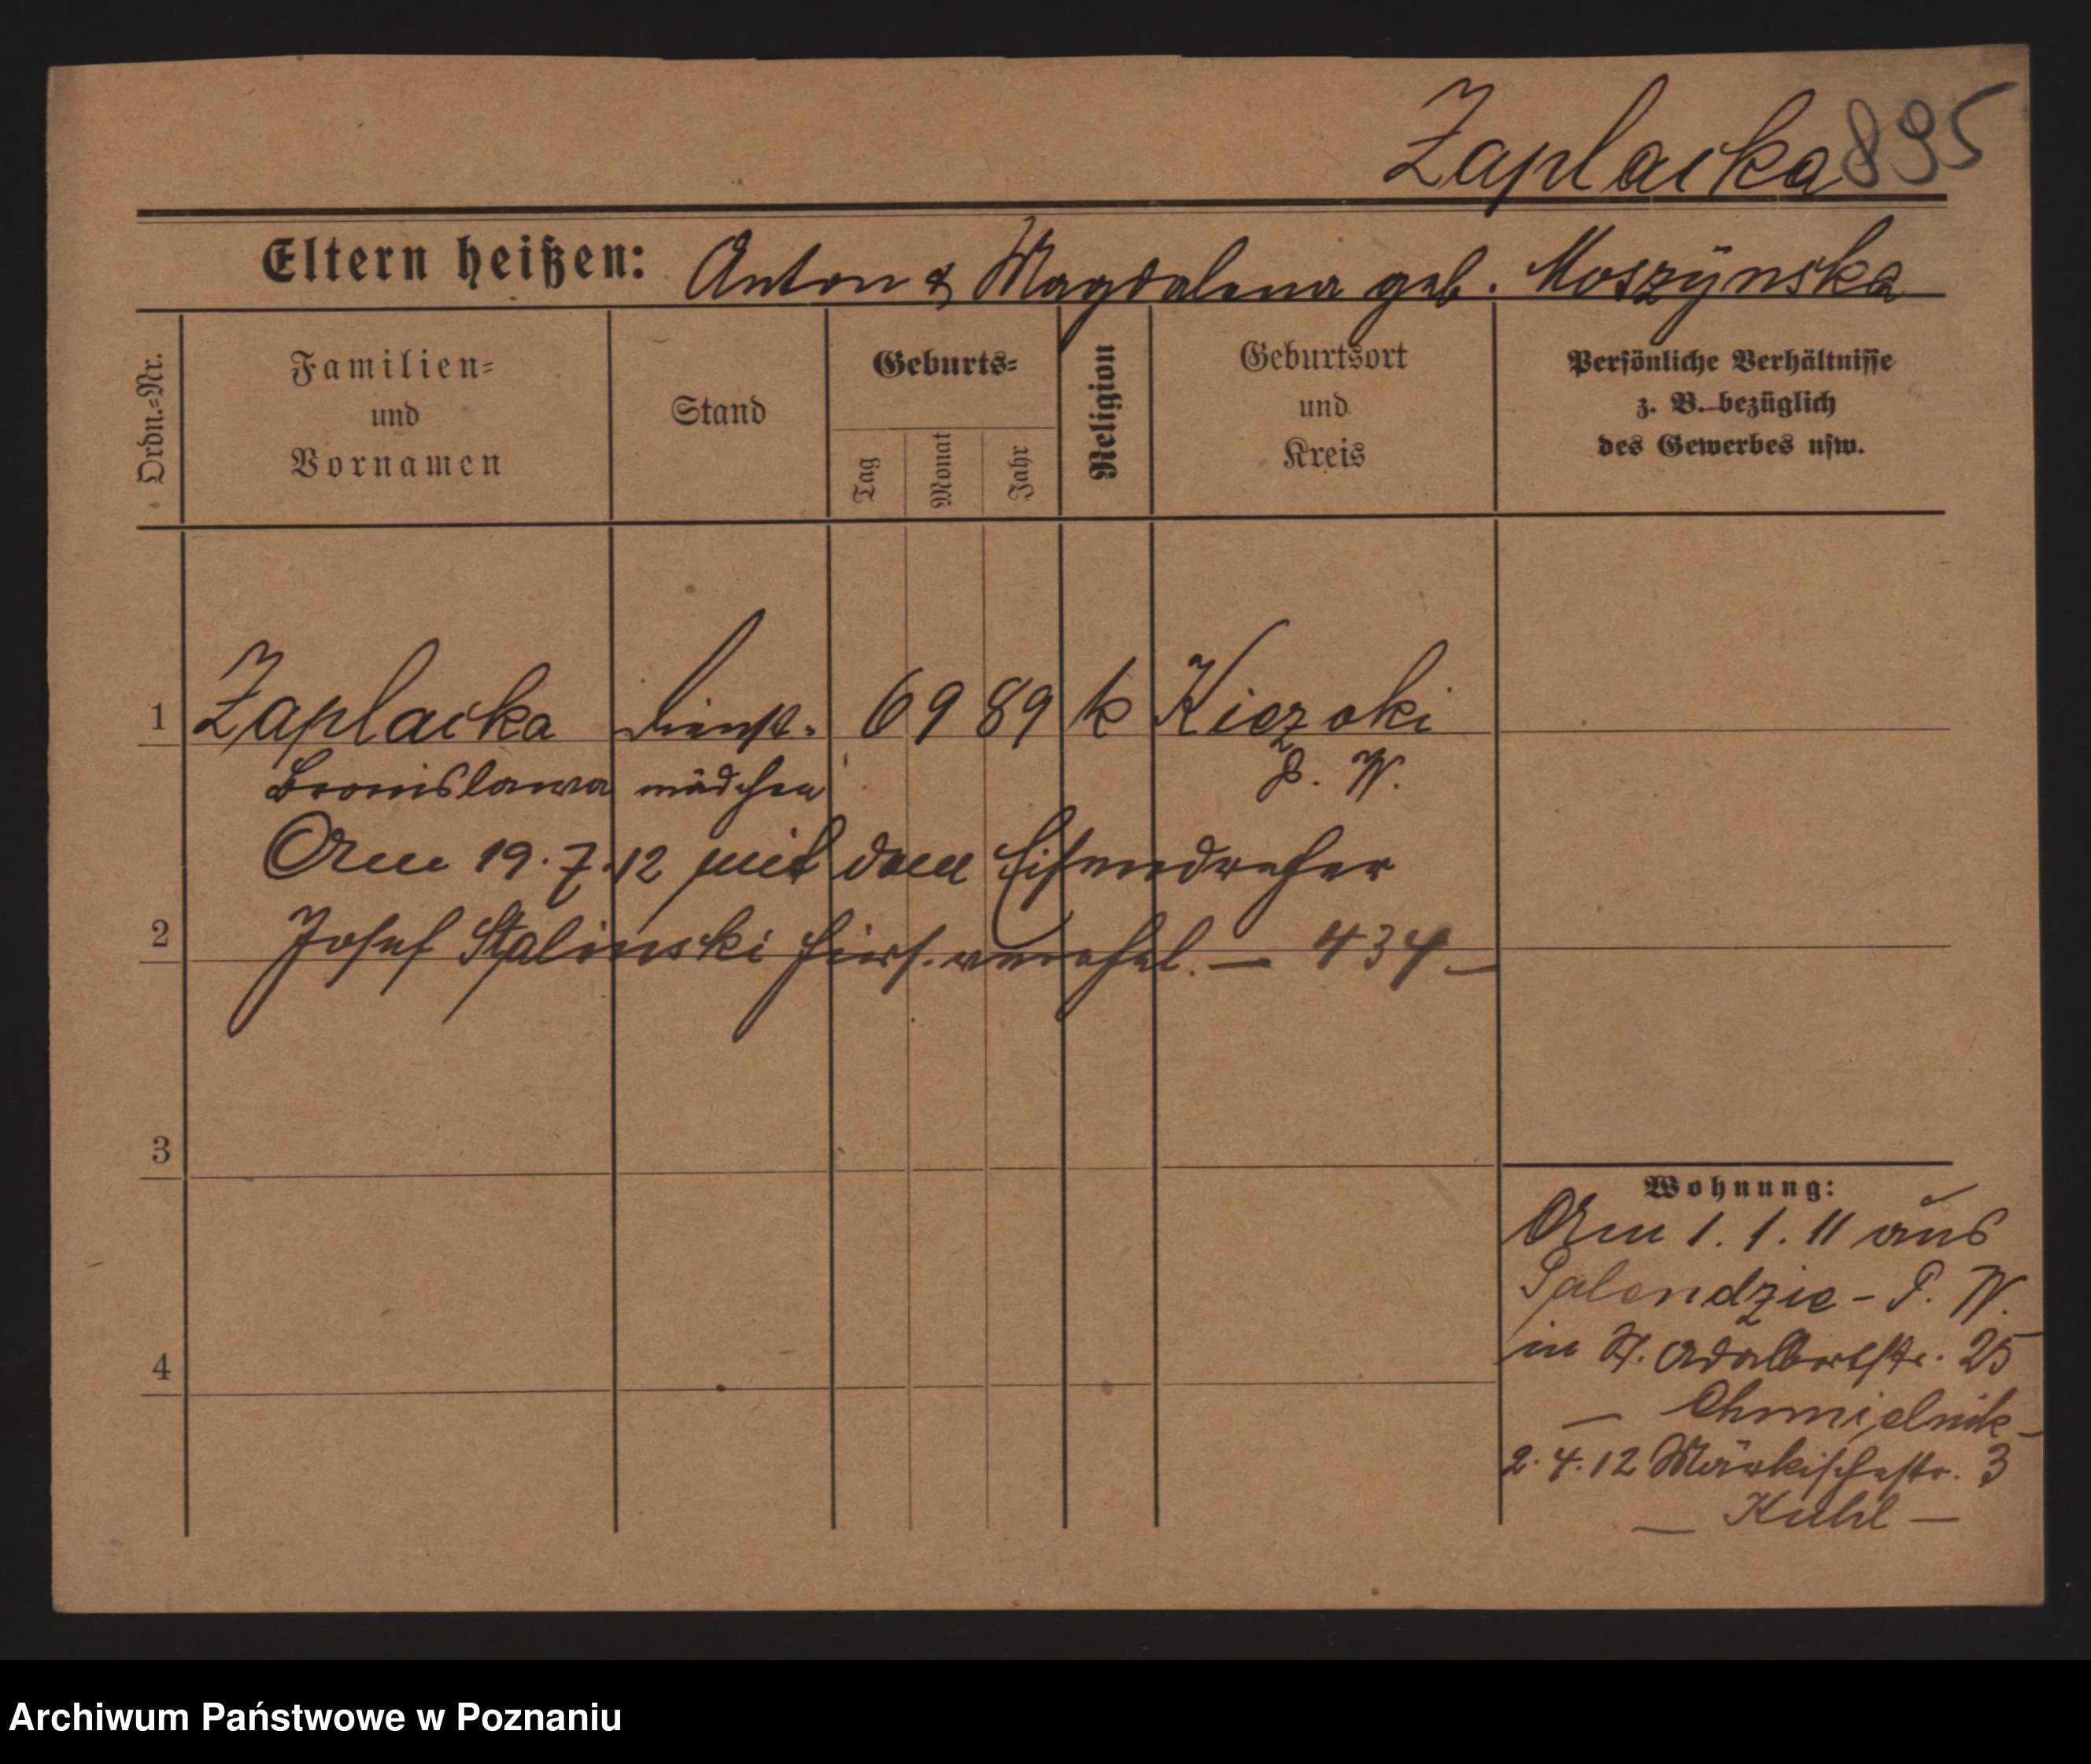 Zaplacka 895
Eltern heißen: Anton & Magdalena geb. Moszÿnska
Ordn.-Nr.
Familien-
und
Vornamen
Stand
Geburts-
Tag
Monat
Jahr
Religion
Geburtsort
und
Kreis
Persönliche Verhältnisse
z. B. bezüglich
des Gewerbes usw.
1 Zaplacka Dienst- 6 9 89 k Kiezoki
Bronislawa mädchen P. W.
Am 19.7.12 mit dem Eisendreher
2 Josef Stalinski hiers. verehel. — 434 —
3
4
Wohnung:
Am 1.1.11 aus
Palendzie - P. W.
in St. Adalbertstr. 25
— Chmielnik —
2.4.12 Märkischestr. 3
— Kuhl —
Archiwum Państwowe w Poznaniu